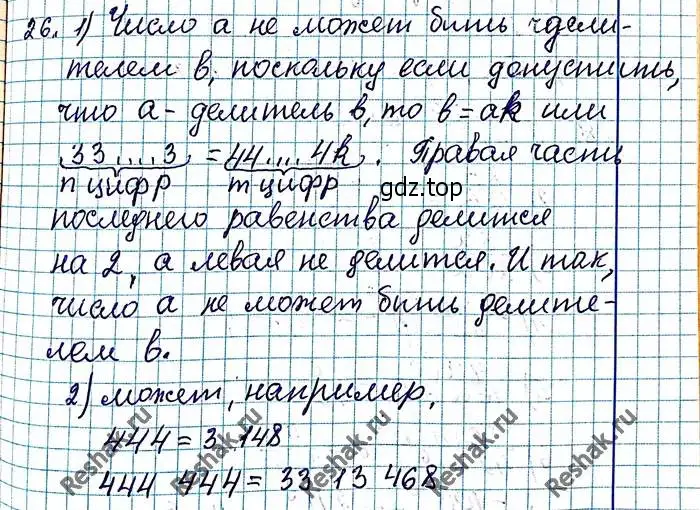 26. 1) Число а не может быть чдели-
телем в, поскольку если допустить,
что а - делитель в, то в = ак или
33....3 = 44....4k. Правая часть
п цифр т цифр
gdz.top
последнего равенства делится
на 2, а левая не делится. И так,
число а не может быть делите-
лем в.
2) может, например,
444 = 3 148
444 444 = 33 13 468
Reshak.ru
Reshak.ru
Reshak.ru
Reshak.ru
Reshak.ru